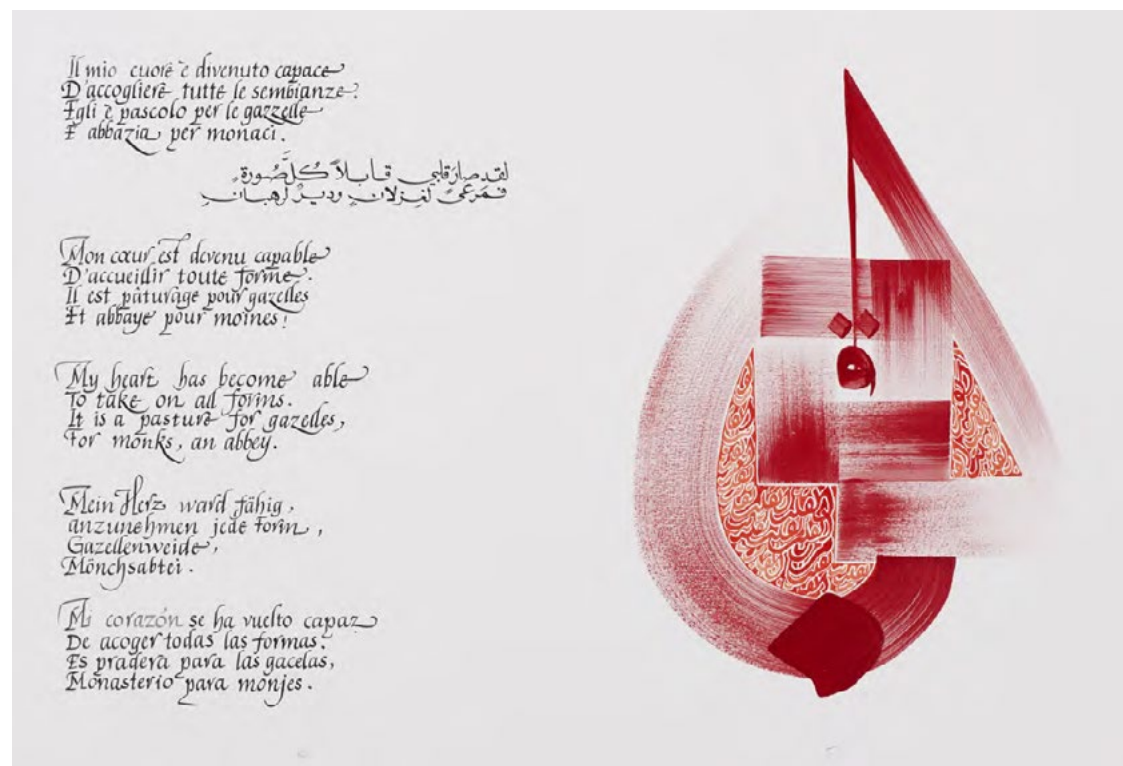 Il mio cuore è divenuto capace
D'accogliere tutte le sembianze.
Egli è pascolo per le gazzelle
E abbazia per monaci.
لقد صارَ قلبي قابلاً كلَّ صُورةٍ
فمَرعىً لغزلانٍ وديرٌ لرهبانِ
Mon cœur est devenu capable
D'accueillir toute forme.
Il est pâturage pour gazelles
Et abbaye pour moines!
My heart has become able
To take on all forms.
It is a pasture for gazelles,
For monks, an abbey.
Mein Herz ward fähig,
anzunehmen jede Form,
Gazellenweide,
Mönchsabtei.
Mi corazón se ha vuelto capaz
De acoger todas las formas.
Es pradera para las gacelas,
Monasterio para monjes.